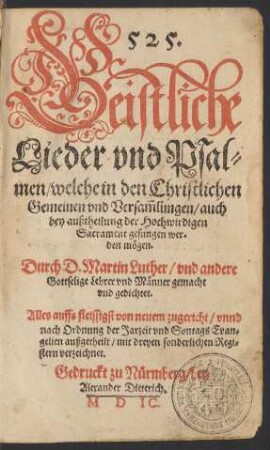 525.
Geistliche
Lieder vnd Psal-
men/welche in den Christlichen
Gemeinen vnd Versam̃lungen/auch
bey außtheilung der Hochwirdigen
Sacrament gesungen wer-
den mögen.
Durch D. Martin Luther/vnd andere
Gottselige Lehrer vnd Männer gemacht
vnd gedichtet.
Alles auffs fleissigst von neuem zugericht/vnnd
nach Ordnung der Jarzeit vnd Sontags Evan-
gelien außgetheilt/mit dreyen sonderlichen Regi-
stern verzeichnet.
Gedruckt zu Nürmberg/bey
Alexander Dieterich.
M D IC.